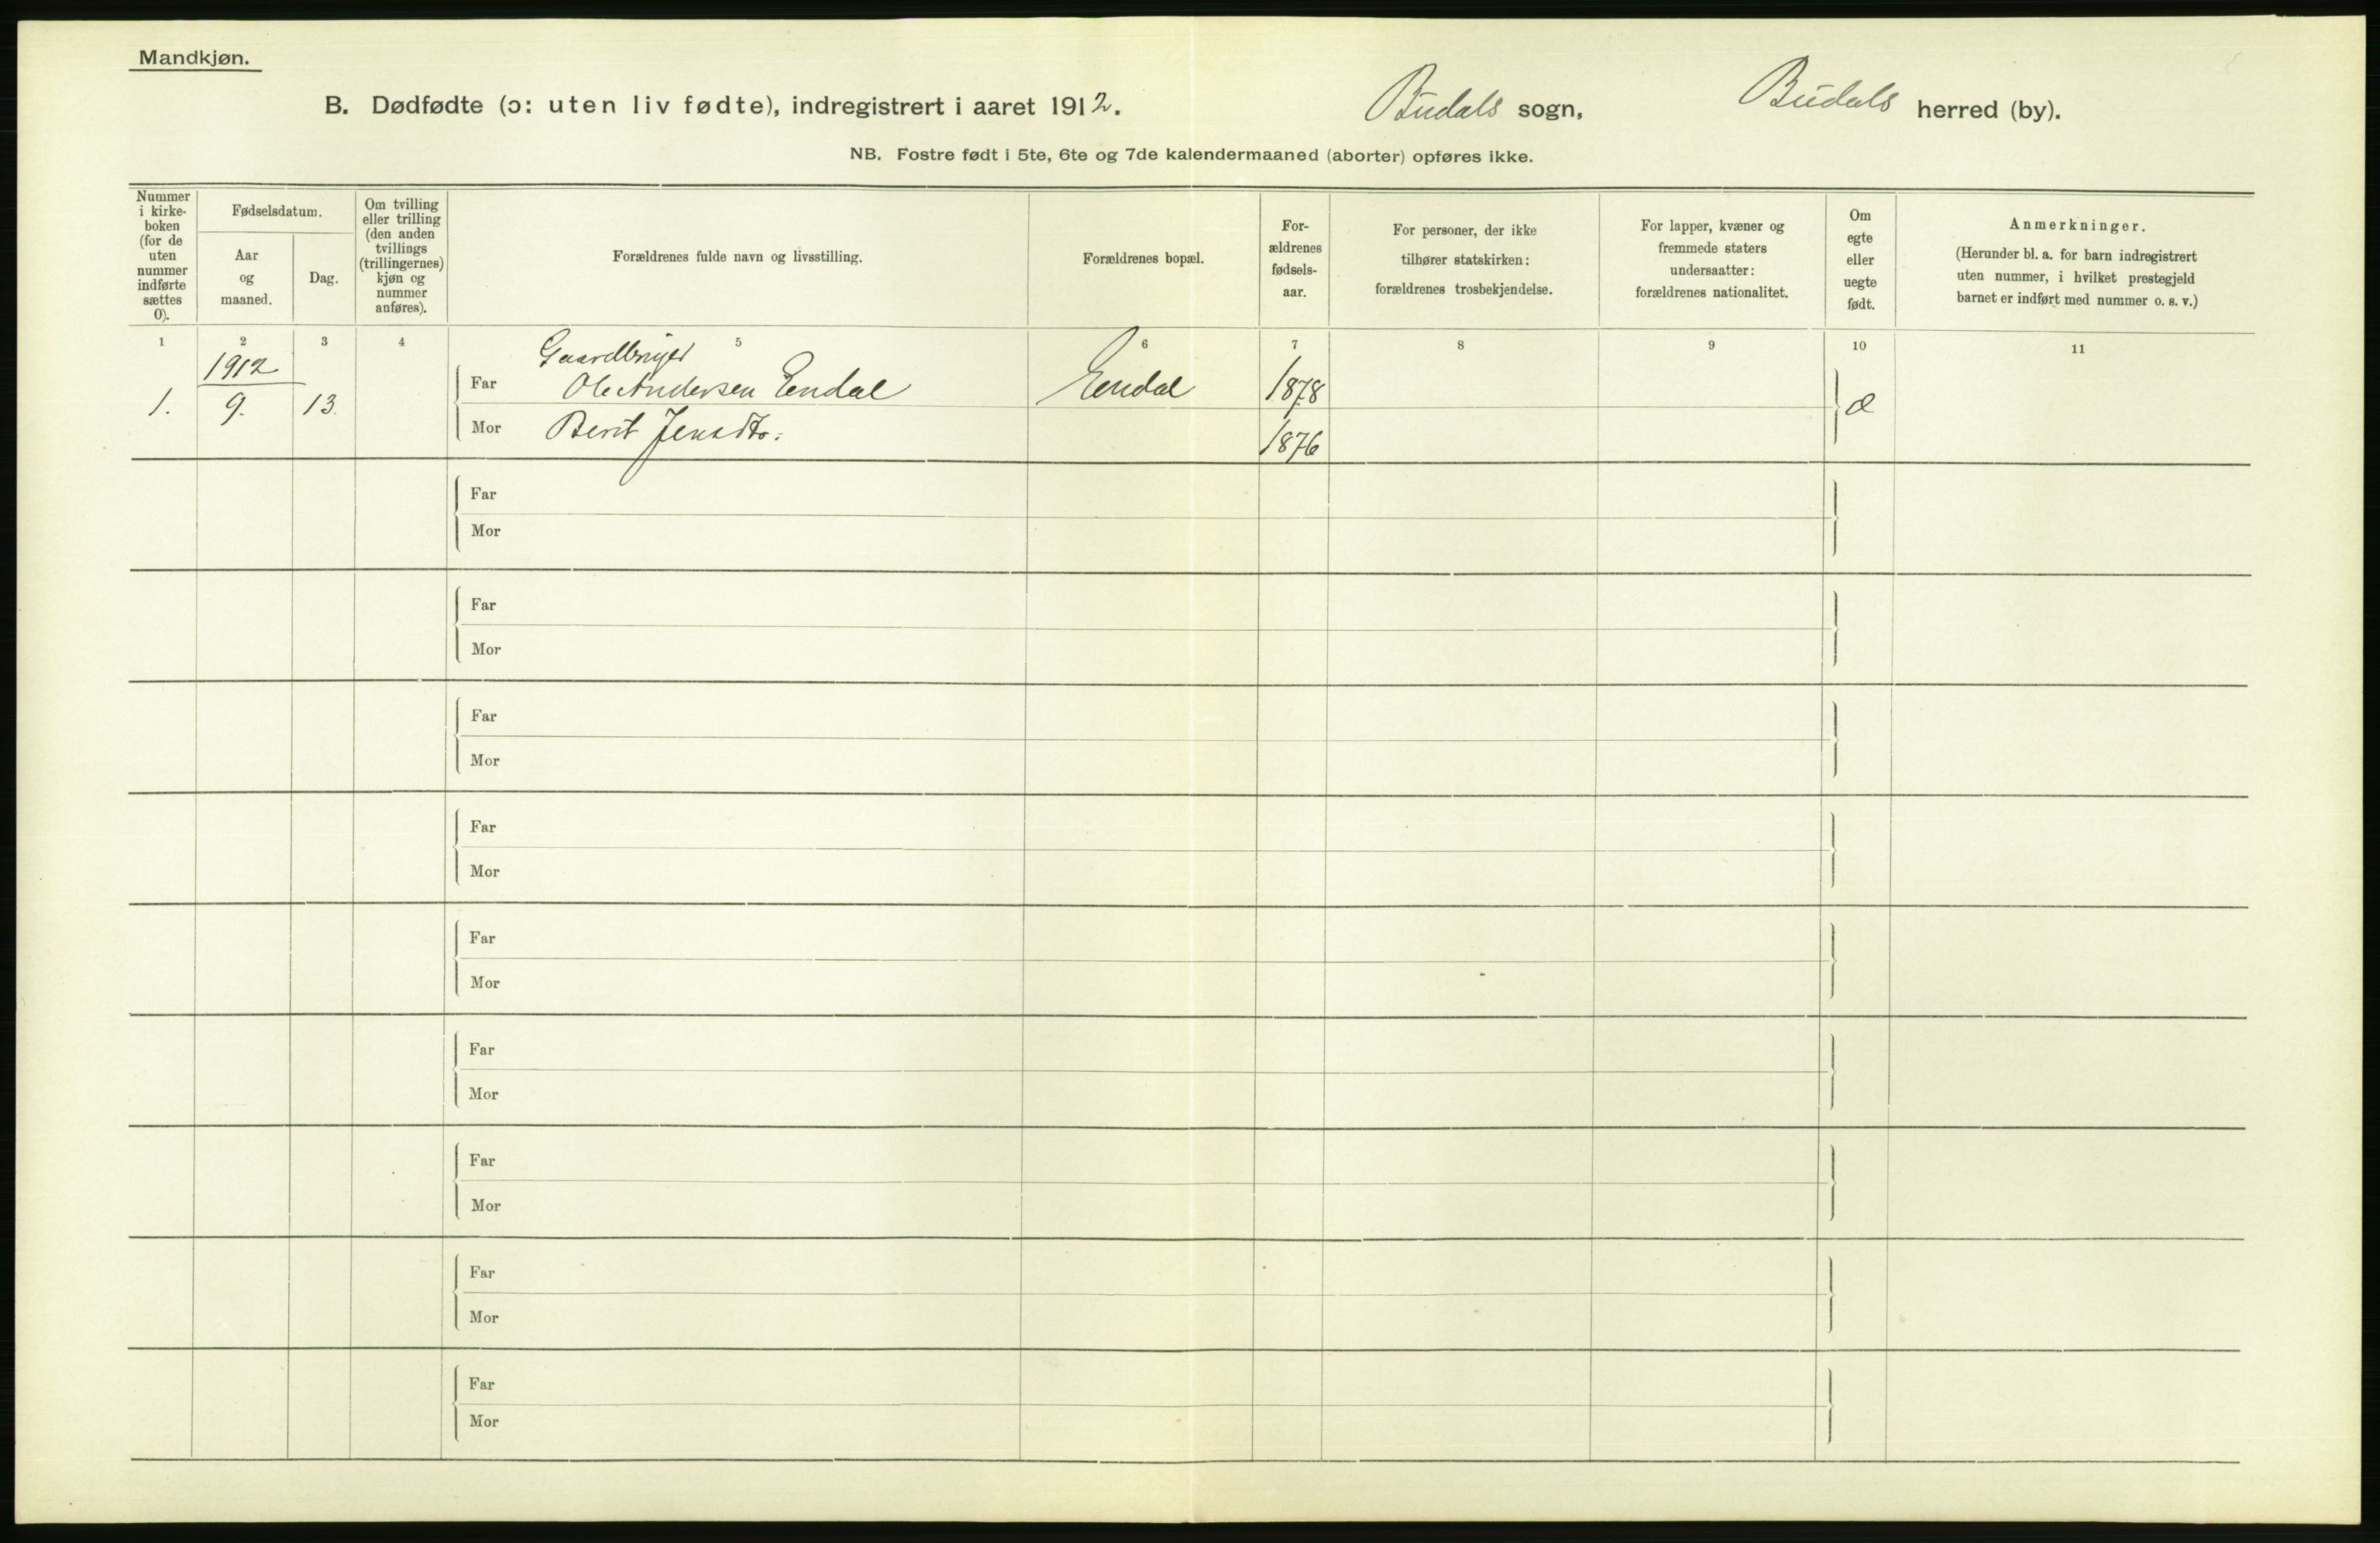 Mandkjøn.
B. Dødfødte (ɔ: uten liv fødte), indregistrert i aaret 1912. Budals sogn, Budals herred (by).
NB. Fostre født i 5te, 6te og 7de kalendermaaned (aborter) opføres ikke.
Nummer
i kirke-
boken
(for de
uten
nummer
indførte
sættes
0).
Fødselsdatum.
Aar
og
maaned.
Dag.
Om tvilling
eller trilling
(den anden
tvillings
(trillingernes)
kjøn og
nummer
anføres).
Forældrenes fulde navn og livsstilling.
Forældrenes bopæl.
For-
ældrenes
fødsels-
aar.
For personer, der ikke
tilhører statskirken:
forældrenes trosbekjendelse.
For lapper, kvæner og
fremmede staters
undersaatter:
forældrenes nationalitet.
Om
egte
eller
uegte
født.
Anmerkninger.
(Herunder bl. a. for barn indregistrert
uten nummer, i hvilket prestegjeld
barnet er indført med nummer o. s. v.)
1 2 3 4 5 6 7 8 9 10 11
1912
Gaardbruger
1. 9. 13. Far Ole Andersen Endal Endal 1878 æ
Mor Berit Jensdtr. 1876
Far
Mor
Far
Mor
Far
Mor
Far
Mor
Far
Mor
Far
Mor
Far
Mor
Far
Mor
Far
Mor